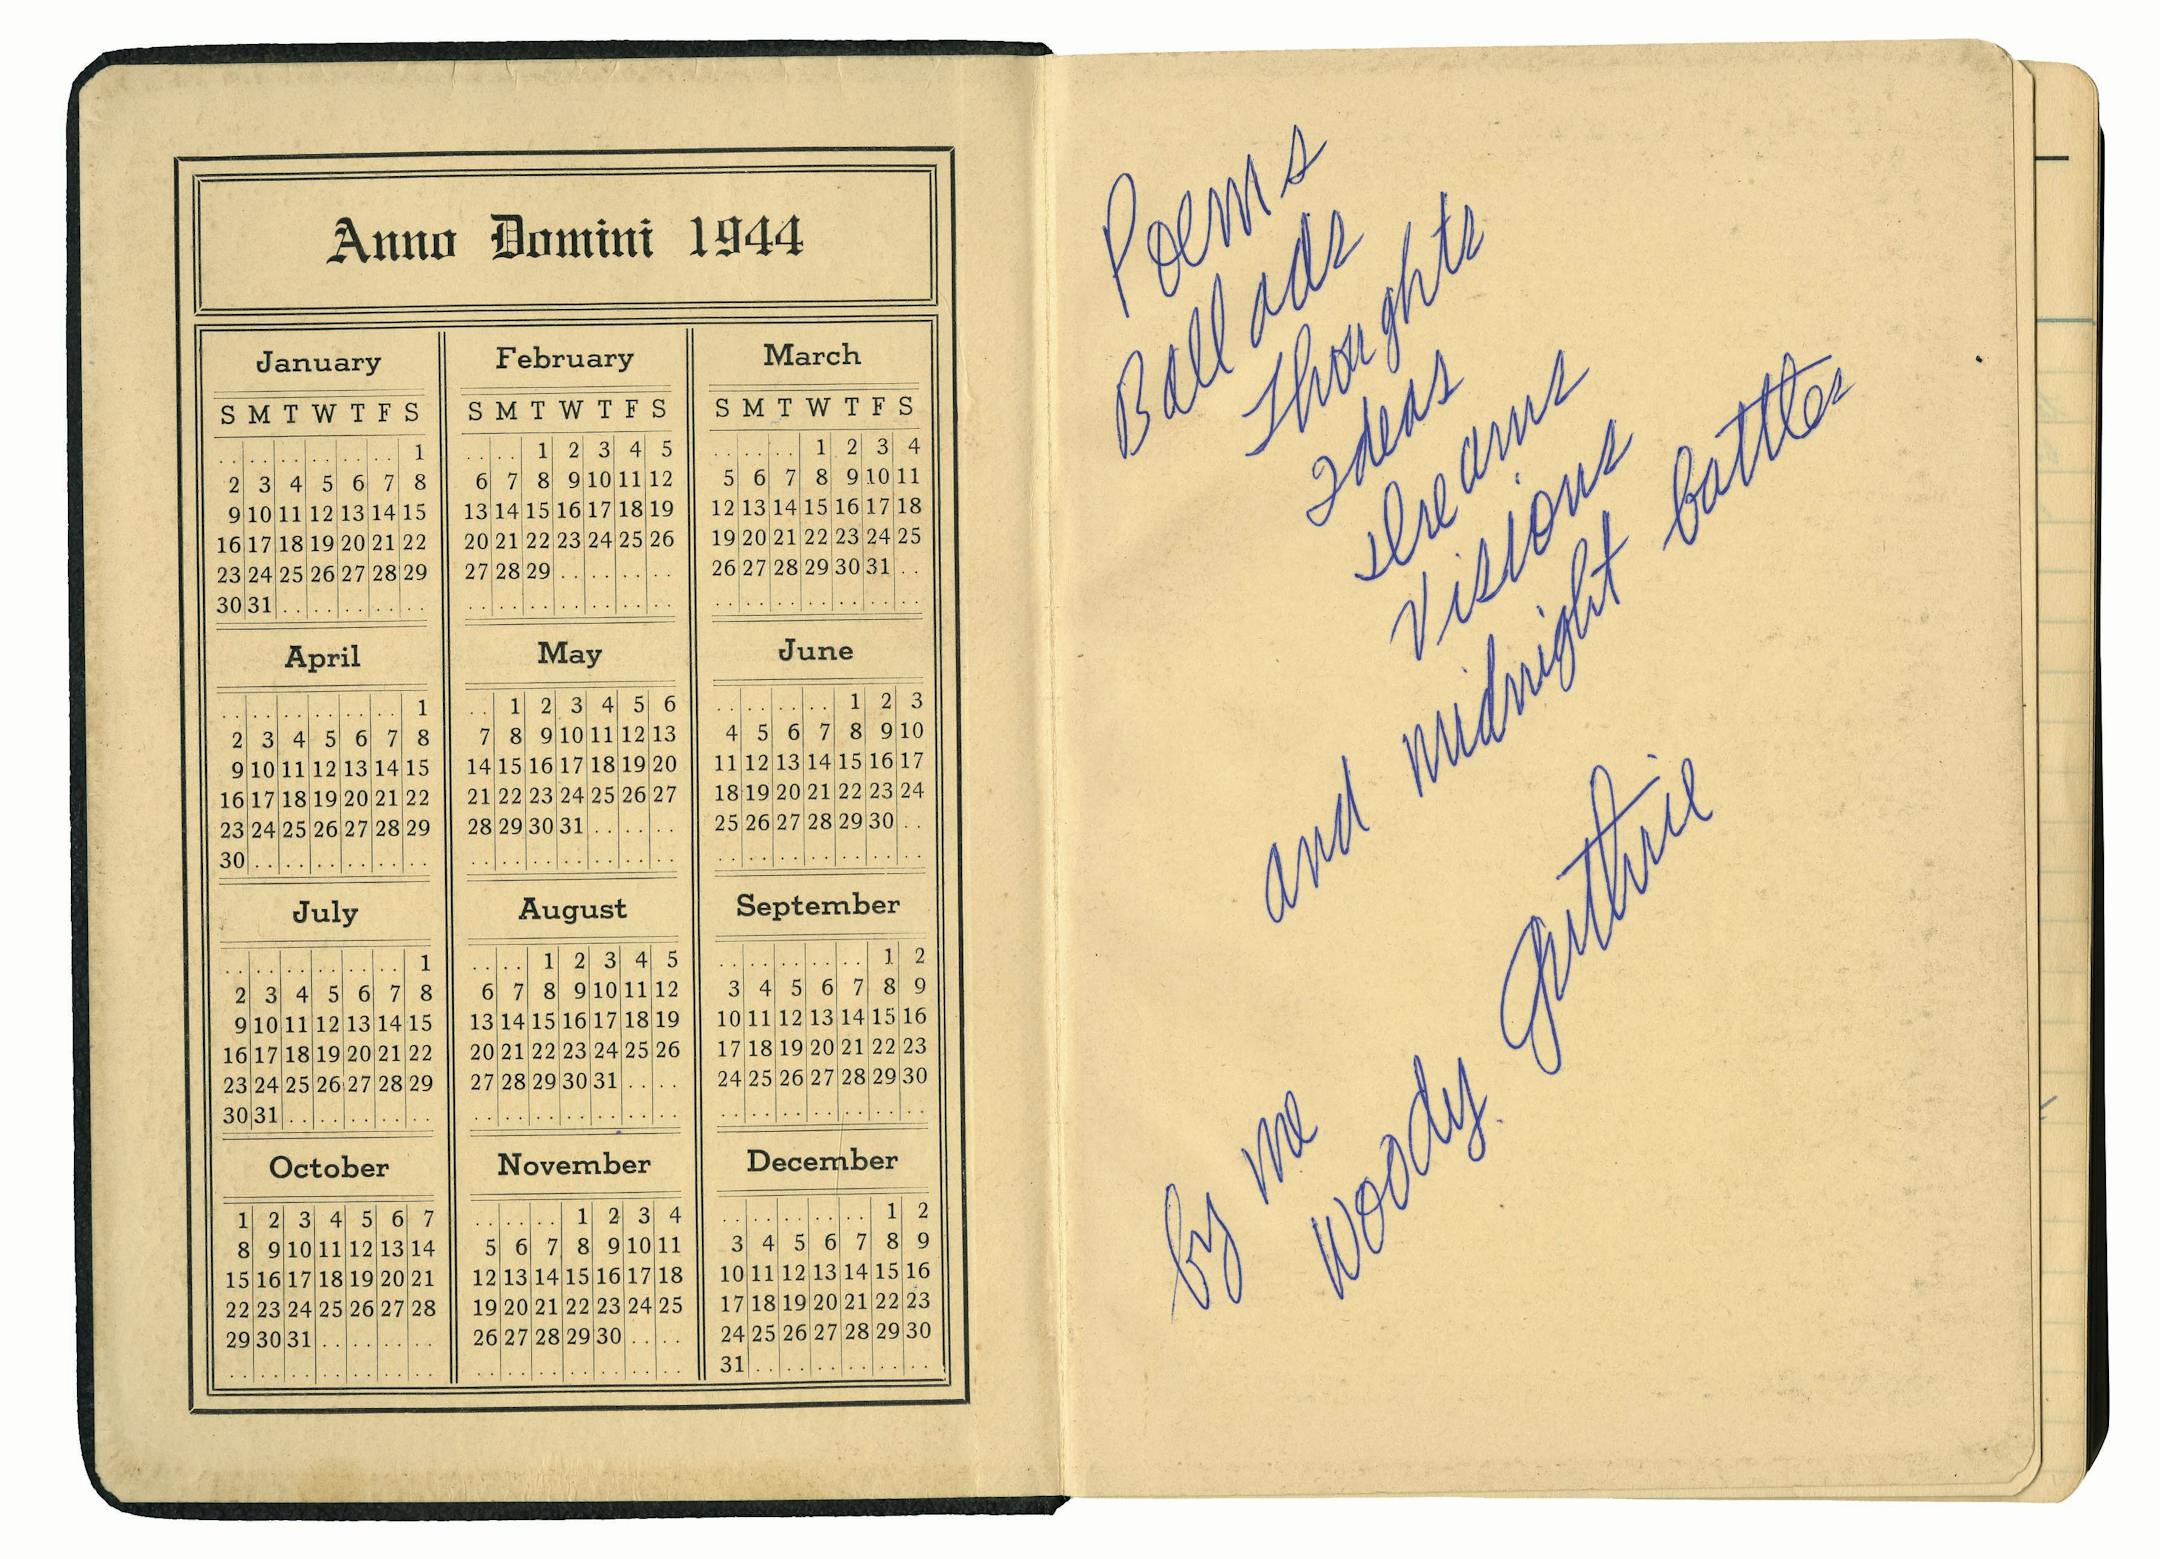 Anno Domini 1944
January
S M T W T F S
1
2 3 4 5 6 7 8
9 10 11 12 13 14 15
16 17 18 19 20 21 22
23 24 25 26 27 28 29
30 31
February
S M T W T F S
1 2 3 4 5
6 7 8 9 10 11 12
13 14 15 16 17 18 19
20 21 22 23 24 25 26
27 28 29
March
S M T W T F S
1 2 3 4
5 6 7 8 9 10 11
12 13 14 15 16 17 18
19 20 21 22 23 24 25
26 27 28 29 30 31
April
1
2 3 4 5 6 7 8
9 10 11 12 13 14 15
16 17 18 19 20 21 22
23 24 25 26 27 28 29
30
May
1 2 3 4 5 6
7 8 9 10 11 12 13
14 15 16 17 18 19 20
21 22 23 24 25 26 27
28 29 30 31
June
1 2 3
4 5 6 7 8 9 10
11 12 13 14 15 16 17
18 19 20 21 22 23 24
25 26 27 28 29 30
July
1
2 3 4 5 6 7 8
9 10 11 12 13 14 15
16 17 18 19 20 21 22
23 24 25 26 27 28 29
30 31
August
1 2 3 4 5
6 7 8 9 10 11 12
13 14 15 16 17 18 19
20 21 22 23 24 25 26
27 28 29 30 31
September
1 2
3 4 5 6 7 8 9
10 11 12 13 14 15 16
17 18 19 20 21 22 23
24 25 26 27 28 29 30
October
1 2 3 4 5 6 7
8 9 10 11 12 13 14
15 16 17 18 19 20 21
22 23 24 25 26 27 28
29 30 31
November
1 2 3 4
5 6 7 8 9 10 11
12 13 14 15 16 17 18
19 20 21 22 23 24 25
26 27 28 29 30
December
1 2
3 4 5 6 7 8 9
10 11 12 13 14 15 16
17 18 19 20 21 22 23
24 25 26 27 28 29 30
31
Poems
Ballads
Thoughts
Ideas
dreams
Visions
and midnight battles
by me
Woody Guthrie